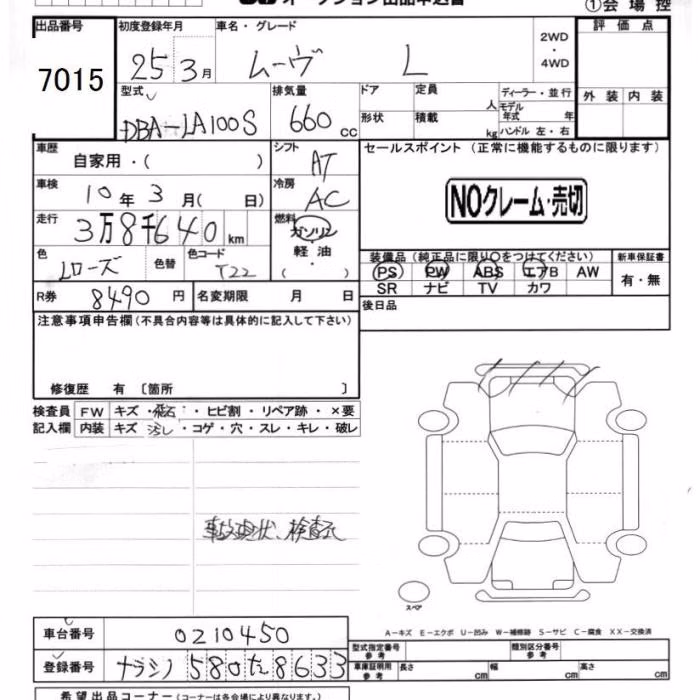 オークション出品申込書
①会場控
出品番号
7015
初度登録年月
25 3月
車名・グレード
ムーヴ L
2WD
・
4WD
評価点
外装 内装
型式
DBA-LA100S
排気量
660 cc
ドア
形状
定員
人
積載
kg
ディーラー・並行
モデル年式 年
ハンドル 左・右
車歴
自家用・( )
シフト
AT
車検
10年 3月( 日)
冷房
AC
走行
3万8千640 km
燃料
ガソリン
軽油
・( )
色
Lローズ
色替
色コード
T22
R券 8490 円
名変期限 月 日
セールスポイント (正常に機能するものに限ります)
NOクレーム・売切
装備品 (純正品に限り○をつけてください)
PS PW ABS エアB AW
SR ナビ TV カワ
新車保証書
有・無
後日品
注意事項申告欄 (不具合内容等は具体的に記入して下さい)
修復歴 有 〔箇所 〕
検査員 FW キズ・飛石・ヒビ割・リペア跡・×要
記入欄 内装 キズ・汚レ・コゲ・穴・スレ・キレ・破レ
事故現状、検査元
スペア
A-キズ E-エクボ U-凹み W-補修跡 S-サビ C-腐食 XX-交換済
車台番号 0210450
登録番号 ナラシノ 580 た 8633
型式指定番号
参考
類別区分番号
参考
車庫証明用
参考
長さ cm 幅 cm 高さ cm
希望出品コーナー (コーナーは各会場により異なります。)